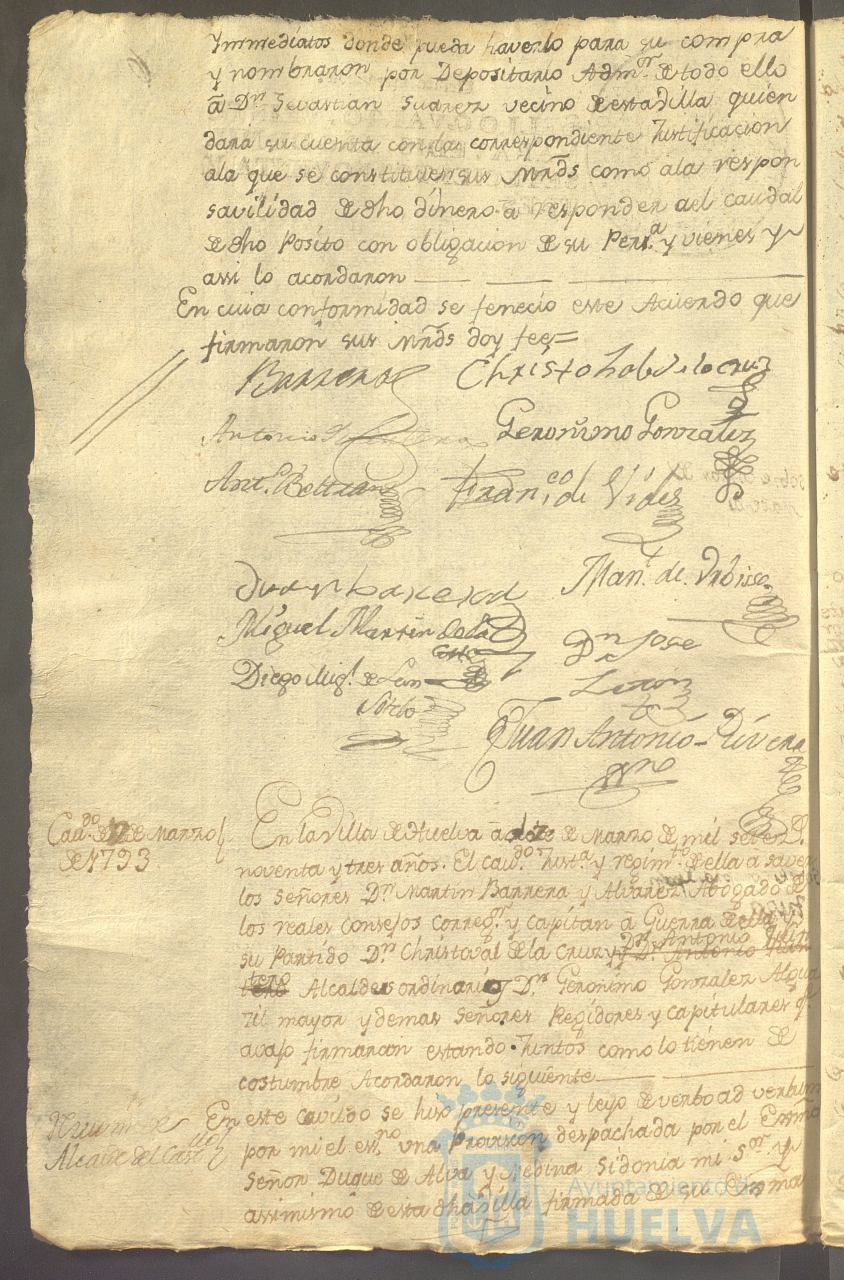 Ymmediatos donde pueda haverlo para su compra
y nombraron por Depositario Admor. de todo ello
a Dn. Sevastian Suarez vecino de esta Villa quien
dará su cuenta con la correspondiente Justificacion
ala que se constituien sus Mrds como ala respon
savilidad de dho dinero a responder del caudal
de dho Posito con obligacion de su Persa. y vienes y
assi lo acordaron
En cuia conformidad se fenecio este Acuerdo que
firmaron sus Mrds doy fee=
Barrera Christobal de la cruz
Antonio Geronimo Gonzalez
Anto. Beltran Franco. de Vides
Juan Man. de
Miguel Martin de la
Dn. Jose
Diego Migl. de Leon
Sotelo
Juan Antonio Rivera
Cavdo. de 17 de Marzo
de 1793
En la Villa de Huelva a de Marzo de mil sete
noventa y tres años. El cavdo. Justa. y regimto. de ella a saver
los señores Dn. Martin Barrera y Alvarez Abogado de
los reales consejos Corregr. y capitan a Guerra de ella y
su Partido Dn. Christoval de la Cruz y Dn. Antonio Quin
tero Alcaldes ordinarios Dn. Geronimo Gonzalez Algua
zil mayor y demas señores Regidores y capitulares q
avajo firmaran estando Juntos como lo tienen de
costumbre Acordaron lo siguiente
Alcaide del Castillo
En este cavildo se hiso presente y leyo de verbo ad verbum
por mi el esno. una Provision despachada por el Exmo
señor Duque de Alva y Medina Sidonia mi Sor. y
assimismo de esta dha Villa firmada de su Exma
Ayuntamiento de
HUELVA